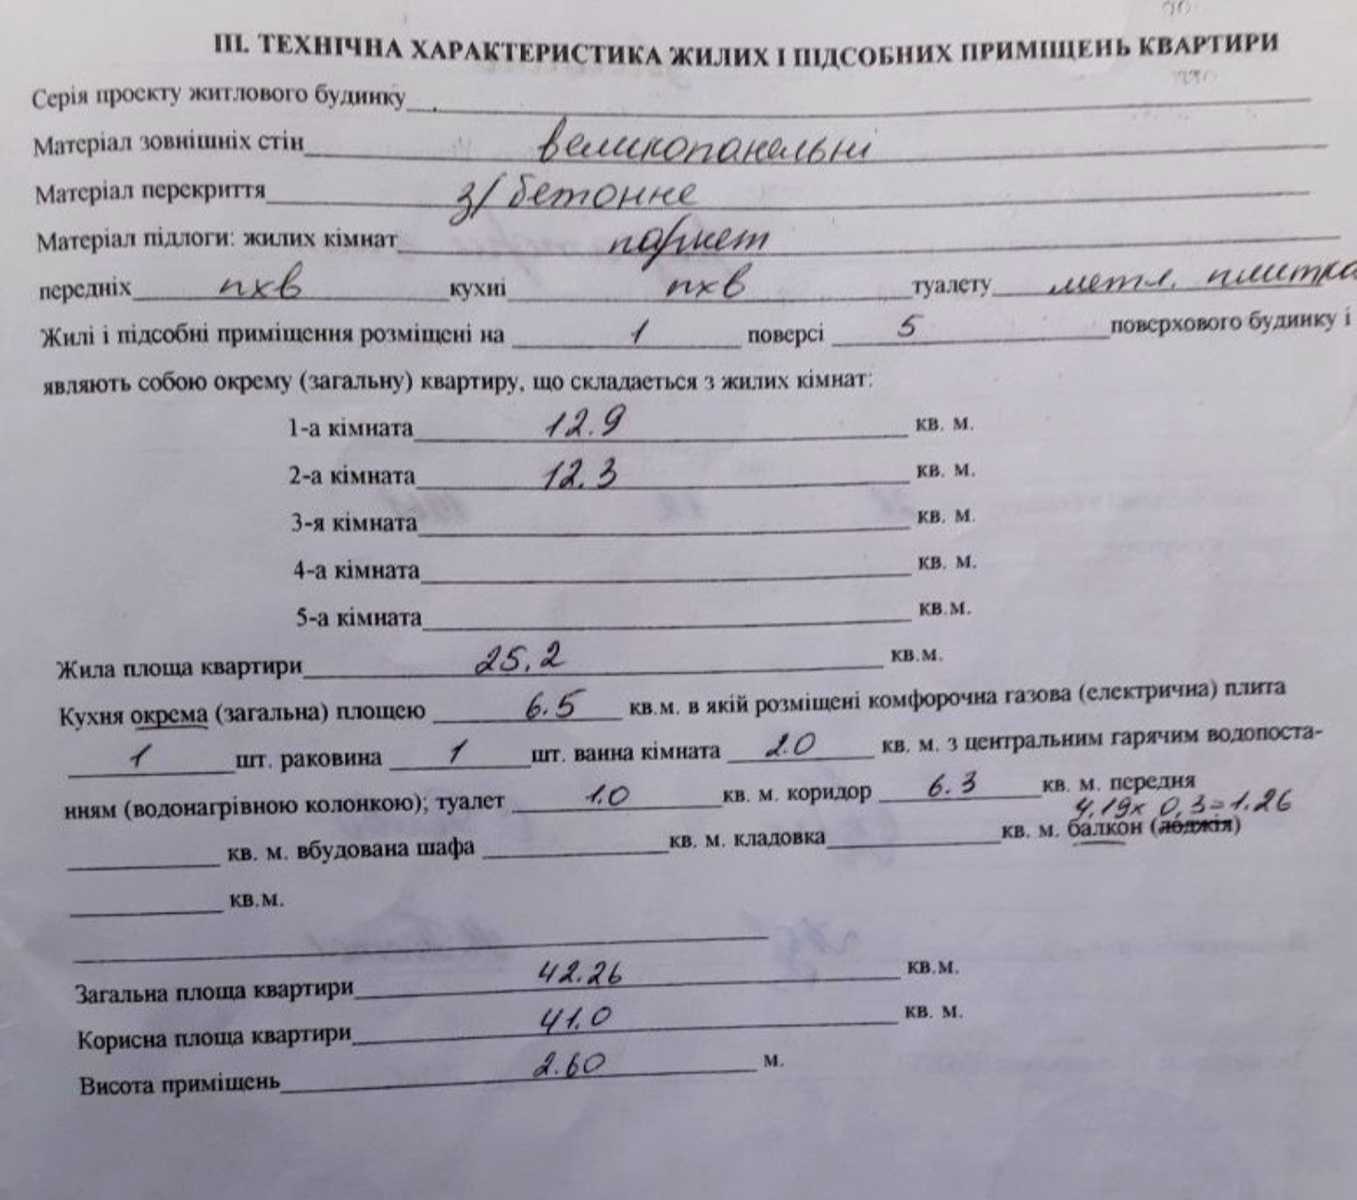 ІІІ. ТЕХНІЧНА ХАРАКТЕРИСТИКА ЖИЛИХ І ПІДСОБНИХ ПРИМІЩЕНЬ КВАРТИРИ
Серія проєкту житлового будинку
Матеріал зовнішніх стін великопанельні
Матеріал перекриття з/бетонне
Матеріал підлоги: жилих кімнат паркет
передніх пхв кухні пхв туалету метл. плитка
Жилі і підсобні приміщення розміщені на 1 поверсі 5 поверхового будинку і
являють собою окрему (загальну) квартиру, що складається з жилих кімнат:
1-а кімната 12.9 кв. м.
2-а кімната 12.3 кв. м.
3-я кімната кв. м.
4-а кімната кв. м.
5-а кімната кв.м.
Жила площа квартири 25,2 кв.м.
Кухня окрема (загальна) площею 6.5 кв.м. в якій розміщені комфорочна газова (електрична) плита
1 шт. раковина 1 шт. ванна кімната 2.0 кв. м. з центральним гарячим водопоста-
нням (водонагрівною колонкою); туалет 1.0 кв. м. коридор 6.3 кв. м. передня
4,19х 0,3=1.26
кв. м. вбудована шафа кв. м. кладовка кв. м. балкон (лоджія)
кв.м.
Загальна площа квартири 42.26 кв.м.
Корисна площа квартири 41.0 кв. м.
Висота приміщень 2.60 м.